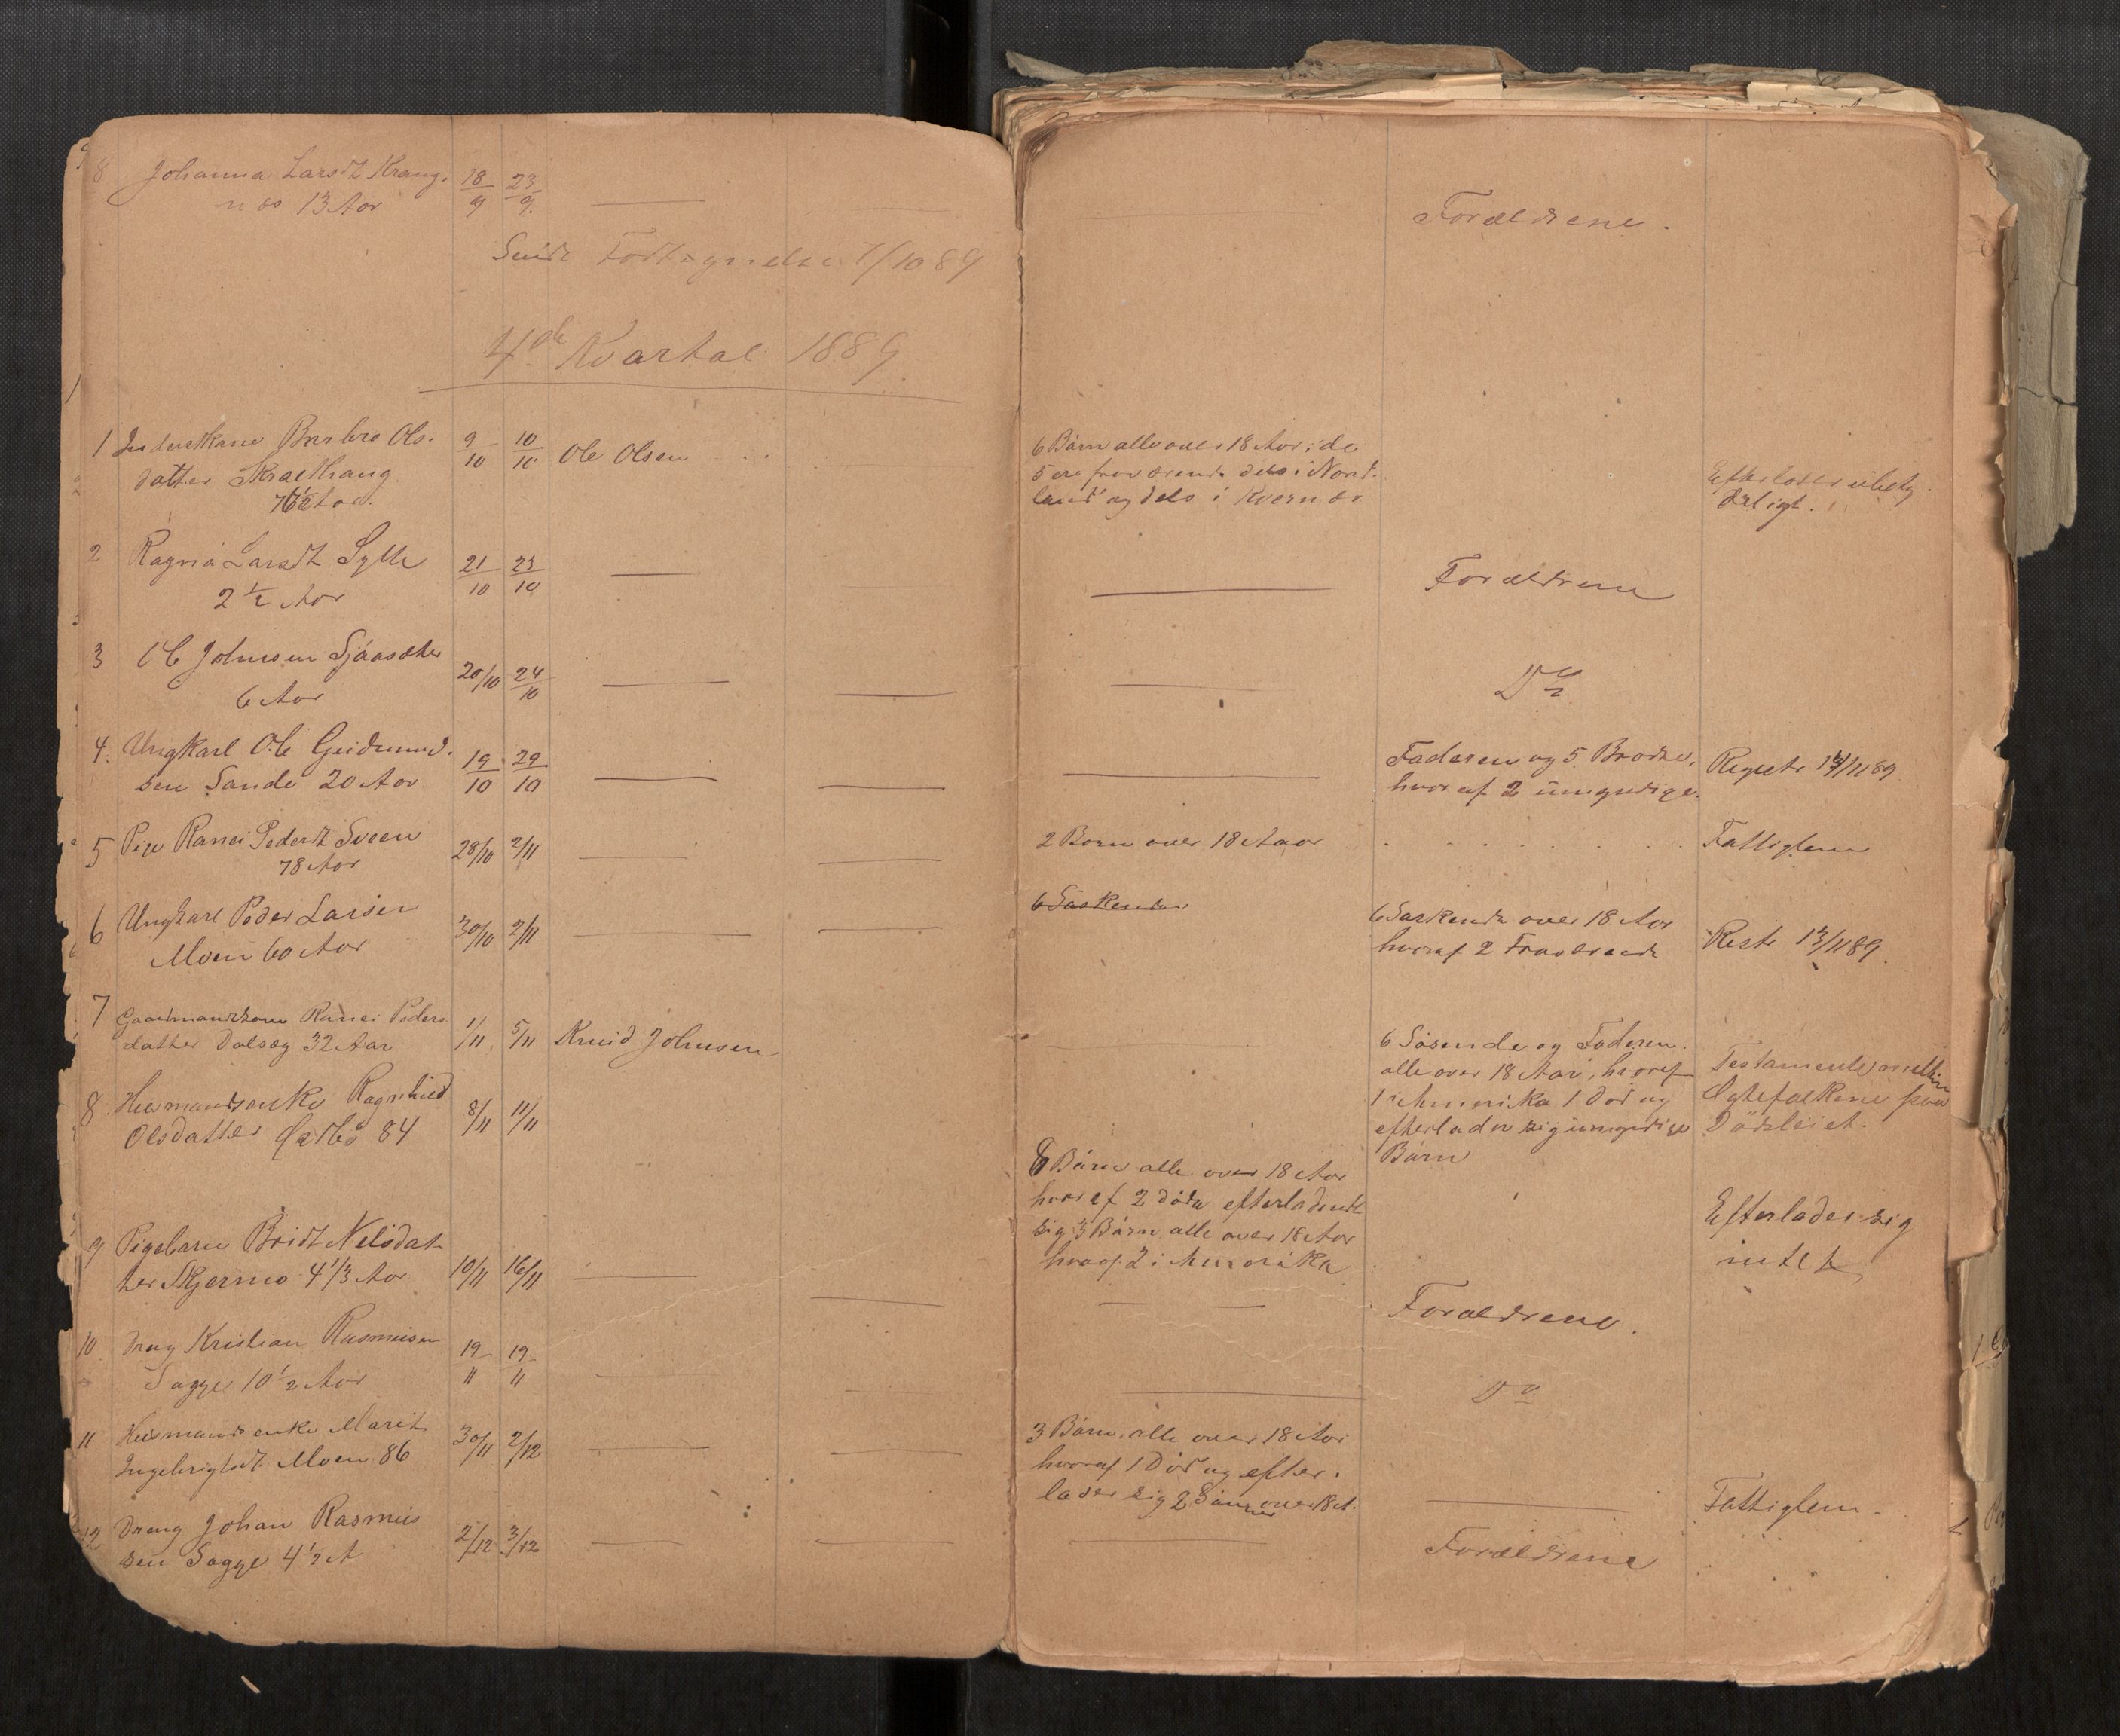 8 Johanna Larsdt Krang-
næs 13 Aar
18/9 23/9
Forældrene.
Sendt Fortegnelse 7/10 89
4de Kvartal 1889
1 Inderstkane Barbro Ols-
datter
76½ Aar.
9/10 10/10 Ole Olsen
6 Børn alle over 18 Aar; de
5 ere fraværende dels i Nord-
land og dels i Kvernæs
Efterlader ubety
deligt.
2 Ragna Larsdt Sylte
2½ Aar
21/10 23/10
Forældrene
3 Ole Johnsen Sjaasæter
6 Aar
20/10 24/10
Do
4. Ungkarl Ole Gudmund-
sen Sande 20 Aar
19/10 29/10
Faderen og 5 Brødre,
hvoraf 2 umyndige.
Registr /11 89
5 Pige Ranei Pedersdt Sveen
78 Aar
28/10 2/11
2 Børn over 18 Aar
Fattiglem
6 Ungkarl Peder Larsen
Moen 60 Aar
30/10 2/11
6 Søskende
6 Søskende over 18 Aar
hvoraf 2 Fraværende
Restr 12/11 89.
7 Gaardmandskone Ranei Peders
datter Dalsæg 32 Aar
1/11 5/11 Knud Johnsen
6 Søsende og Faderen
alle over 18 Aar, hvoraf
1 i Amerika 1 Død og
efterlader sig umyndige
Børn
Testamente mellem
Egtefolkene paa
Dødsleiet.
8 Husmandsenke Ragnhild
Olsdatter 84
8/11 11/11
8 Børn alle over 18 Aar
hvoraf 2 døde efterladende
sig 3 Børn alle over 18 Aar
hvoraf 2 i Amerika
Efterlader sig
intet
9 Pigebarn Bridt Nelsdat-
ter Skjermo 4 1/3 Aar
10/11 16/11
Forældrene.
10 Dreng Kristian Rasmusen
Sogge 10½ Aar
19/11 19/11
Do
11 Husmandsenke Marit
Ingebrigtsdt Moen 86
30/11 2/12
3 Børn alle over 18 Aar
hvoraf 1 Død og efter-
lader sig 2 Sønner over 18 A.
Fattiglem.
12 Dreng Johan Rasmus
sen Sogge 4½ A
2/12 3/12
Forældrene